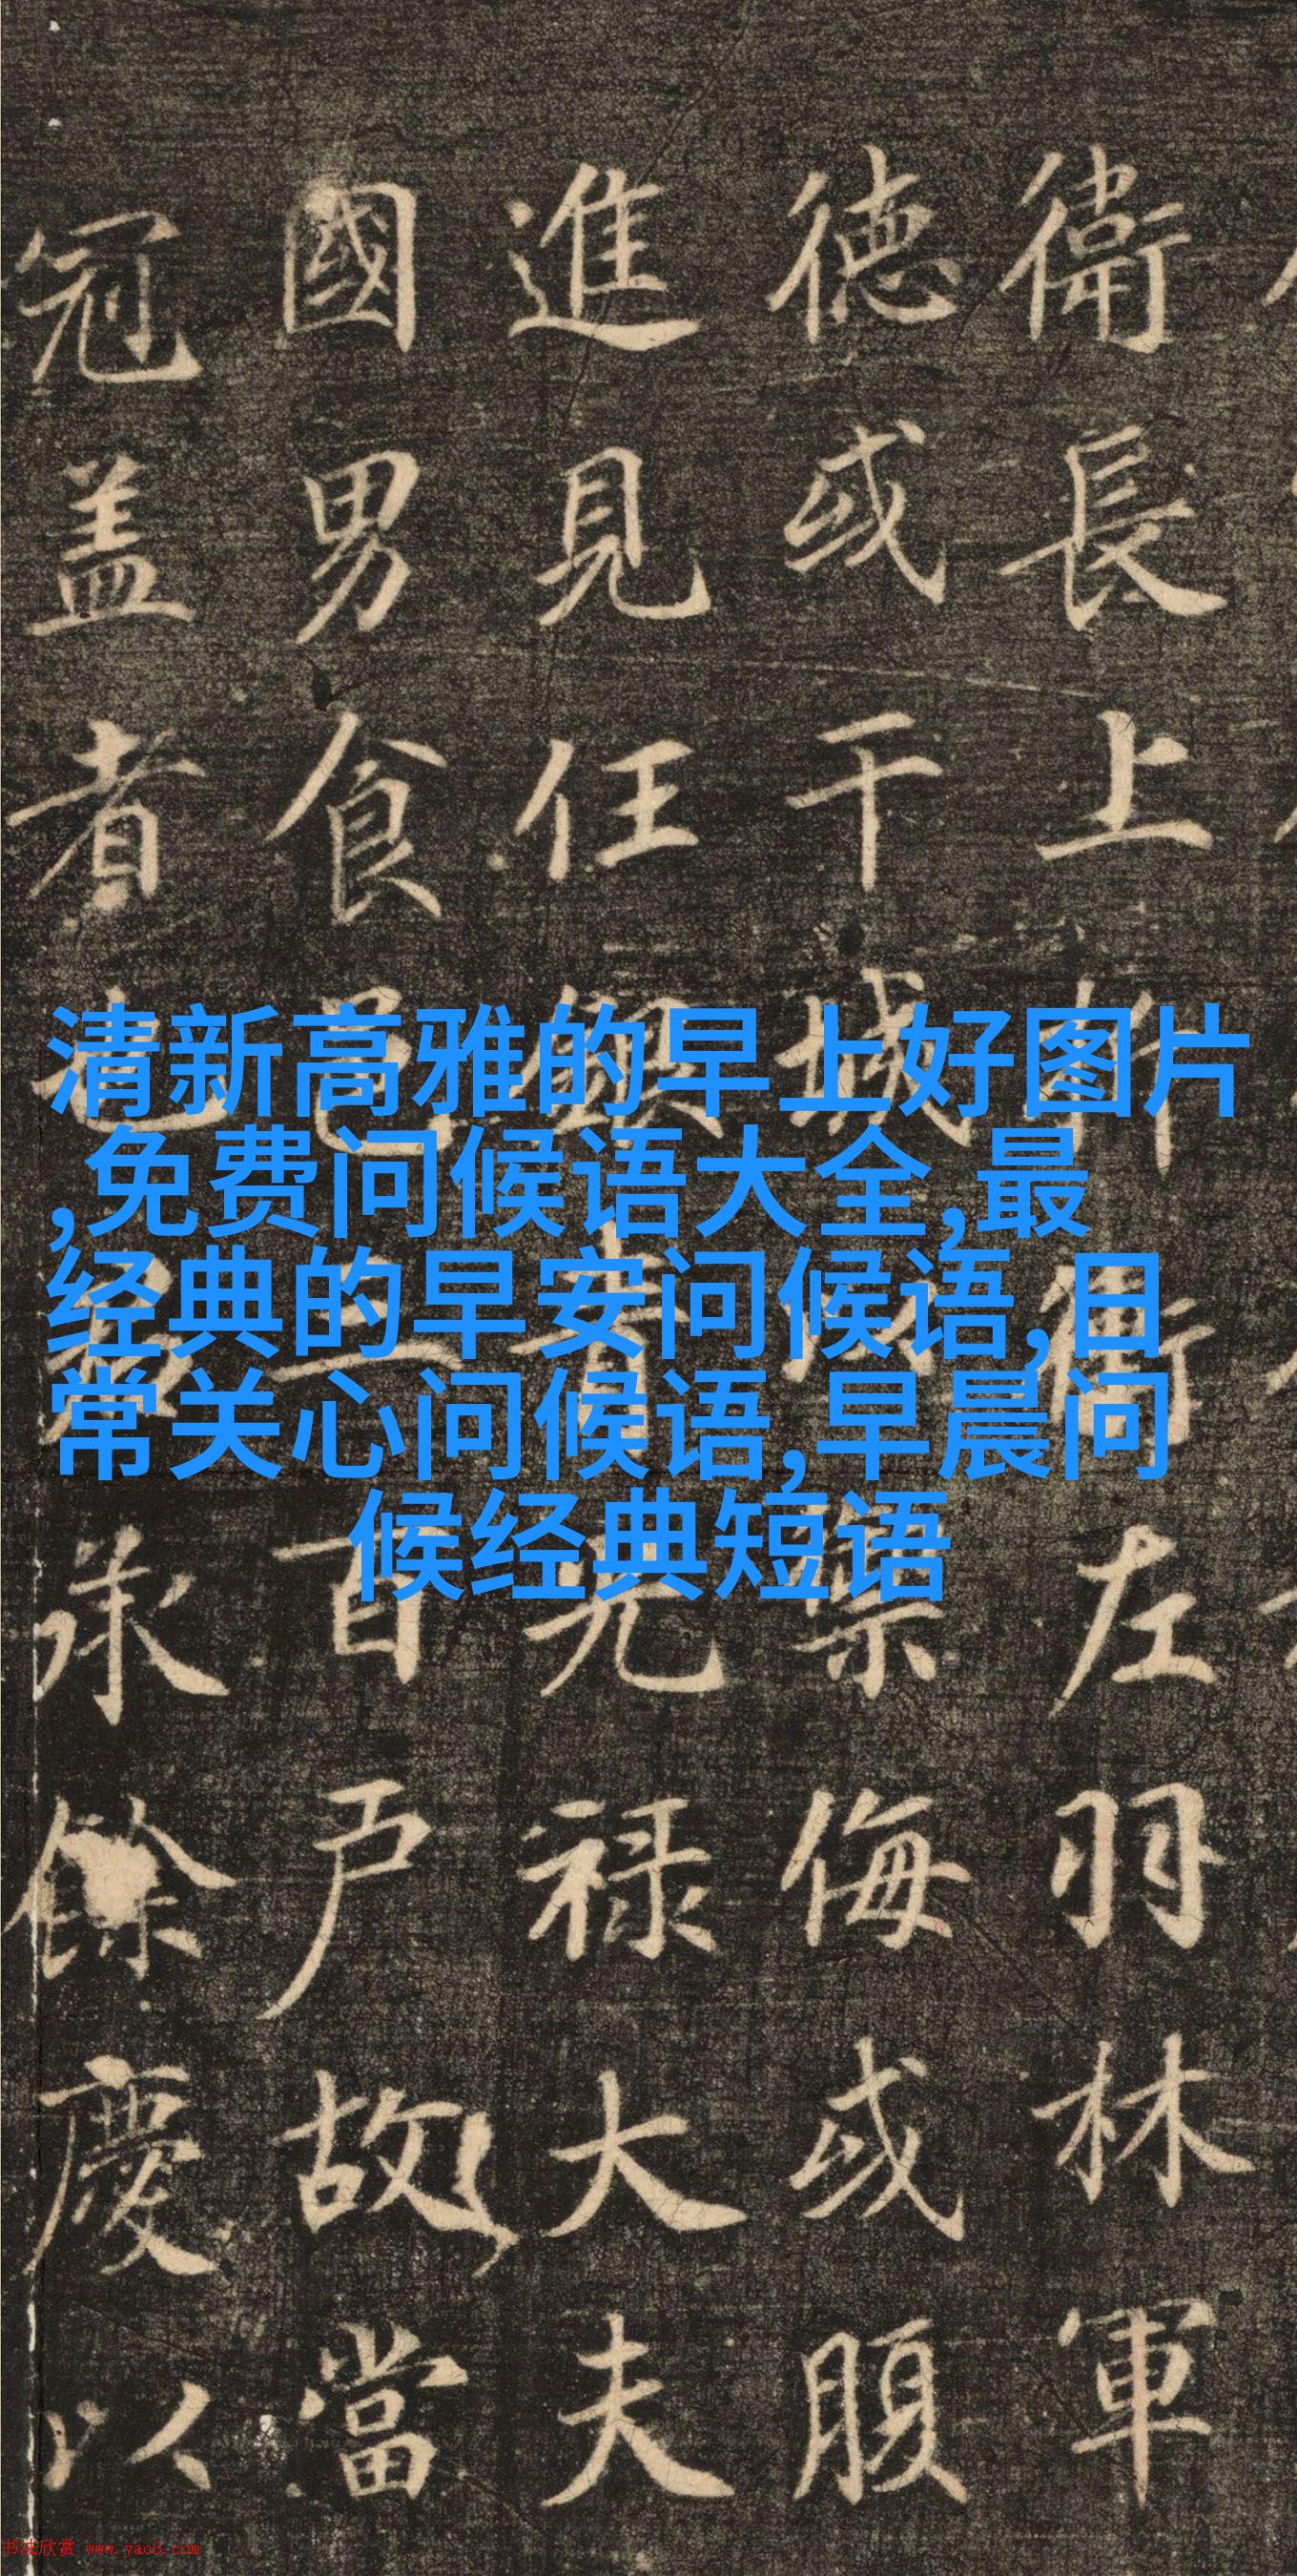 衛長上
左羽林軍
德或干城
禦侮或腹
進見任
光禄大夫
國男食邑
百户故當
冠盖者也
承餘慶以
清新高雅的早上好图片
,免费问候语大全,最
经典的早安问候语,日
常关心问候语,早晨问
候经典短语
书法欣赏 www.yac8.com